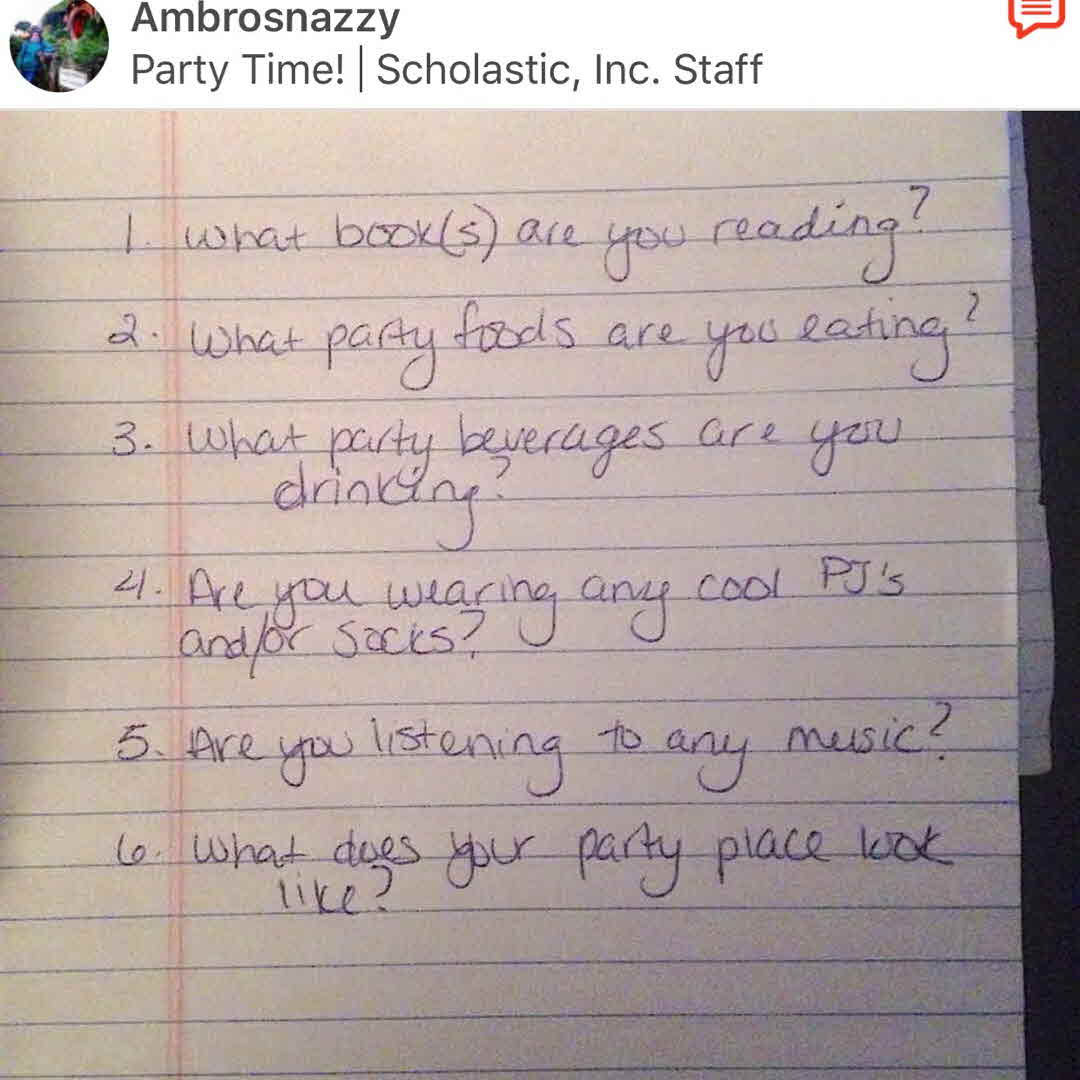 Ambrosnazzy
Party Time! | Scholastic, Inc. Staff
1. What book(s) are you reading?
2. What party foods are you eating?
3. What party beverages are you
drinking?
4. Are you wearing any cool PJ's
and/or socks?
5. Are you listening to any music?
6. What does your party place look
like?